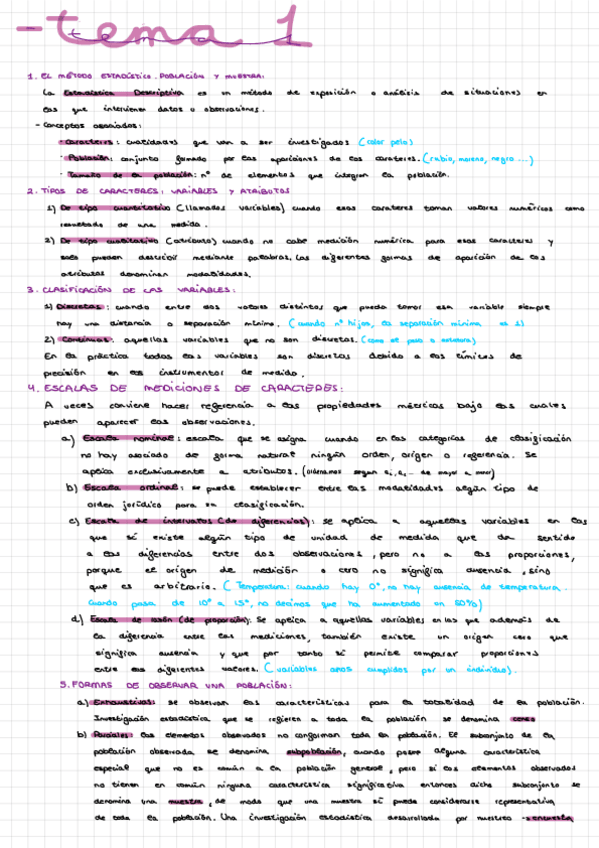 -tema 1
1. EL MÉTODO ESTADÍSTICO. POBLACIÓN Y MUESTRA:
La Estadística Descriptiva es un método de exposición o análisis de situaciones en
las que intervienen datos u observaciones.
- Conceptos asociados:
· Caracteres: cualidades que van a ser investigados (color pelo)
· Población: conjunto formado por las apariciones de los carateres. (rubio, moreno, negro ...)
· Tamaño de la población: nº de elementos que integran la población.
2. TIPOS DE CARACTERES: VARIABLES Y ATRIBUTOS
1) De tipo cuantitativo (llamados variables) cuando esos carateres toman valores numéricos como
resultado de una medida.
2) De tipo cualitativo (atributo) cuando no cabe medición numérica para esos caracteres y
solo pueden describir mediante palabras. Las diferentes formas de aparición de los
atributos denominan modalidades.
3. CLASIFICACIÓN DE LAS VARIABLES:
1) Discretas: cuando entre dos valores distintos que pueda tomar esa variable siempre
hay una distancia o separación mínima. (cuando nº hijos, la separación mínima es 1)
2) Continuas: aquellas variables que no son discretas. (como el peso o estatura)
En la práctica todas las variables son discretas debido a los límites de
precisión en los instrumentos de medida.
4. ESCALAS DE MEDICIONES DE CARACTERES:
A veces conviene hacer referencia a las propiedades métricas bajo las cuales
pueden aparecer las observaciones.
a) Escala nominal: escala que se asigna cuando en las categorías de clasificación
no hay asociado de forma natural ningún orden, origen o referencia. Se
aplica exclusivamente a atributos. (ordenamos según de mayor a menor)
b) Escala ordinal: se puede establecer entre las modalidades algún tipo de
orden jurídico para su clasificación.
c) Escala de intervalos (de diferencias): se aplica a aquellas variables en las
que sí existe algún tipo de unidad de medida que da sentido
a las diferencias entre dos observaciones, pero no a las proporciones,
porque el origen de medición o cero no significa ausencia, sino
que es arbitrario. (Temperatura: cuando hay 0º, no hay ausencia de temperatura.
cuando pasa de 10º a 15º, no decimos que ha aumentado un 50%)
d) Escala de razón (de proporción): Se aplica a aquellas variables en las que además de
la diferencia entre las mediciones, también existe un origen cero que
significa ausencia y que por tanto sí permite comparar proporciones
entre los diferentes valores. (variables años cumplidos por un individuo).
5. FORMAS DE OBSERVAR UNA POBLACIÓN:
a) Exhaustivas: se observan las características para la totalidad de la población.
Investigación estadística que se refieren a toda la población se denomina censo
b) Parciales: los elementos observados no conforman toda la población. El subconjunto de la
población observada se denomina subpoblación, cuando posee alguna característica
especial que no es común a la población general, pero si los elementos observados
no tienen en común ninguna característica significativa entonces dicho subconjunto se
denomina una muestra, de modo que una muestra sí puede considerarse representativa
de toda la población. Una investigación estadística desarrollada por muestreo → encuesta